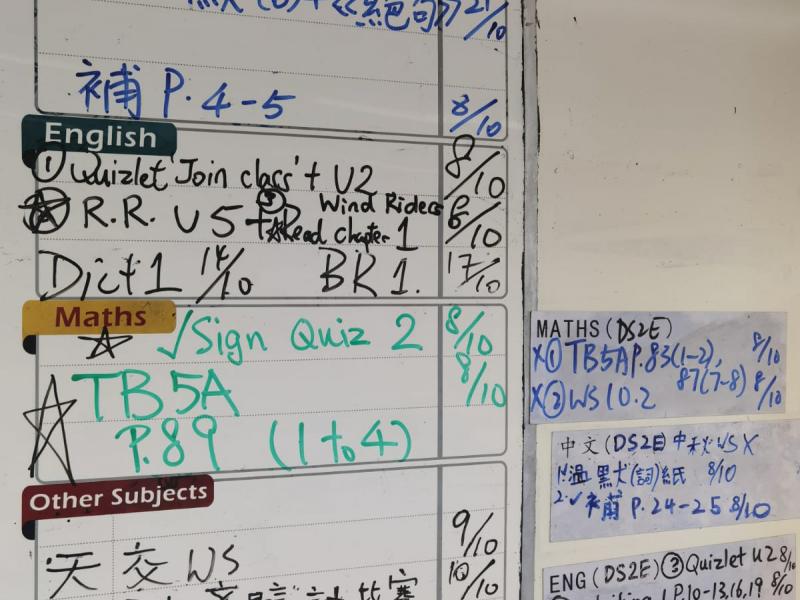 《絕句》 21/10
補 P.4-5 8/10
English
① Quizlet 'Join class' + U2 8/10
R.R. U5 + ③ Wind Riders 8/10
Read chapter 1
Dict 1 14/10 BK 1. 17/10
Maths
√Sign Quiz 2 8/10
TB5A 8/10
P.89 (1 to 4)
Other Subjects
天交 WS 9/10
10/10
MATHS (DS2E)
X① TB5A P.83(1-2), 8/10
87(7-8) 8/10
X② WS 10.2
中文 (DS2E) 中秋 WS X
1.溫 黑犬(詞)紙 8/10
2.✓ 補 P.24-25 8/10
ENG (DS2E) ③ Quizlet U2 8/10
1 P.10-13,16,19 8/10